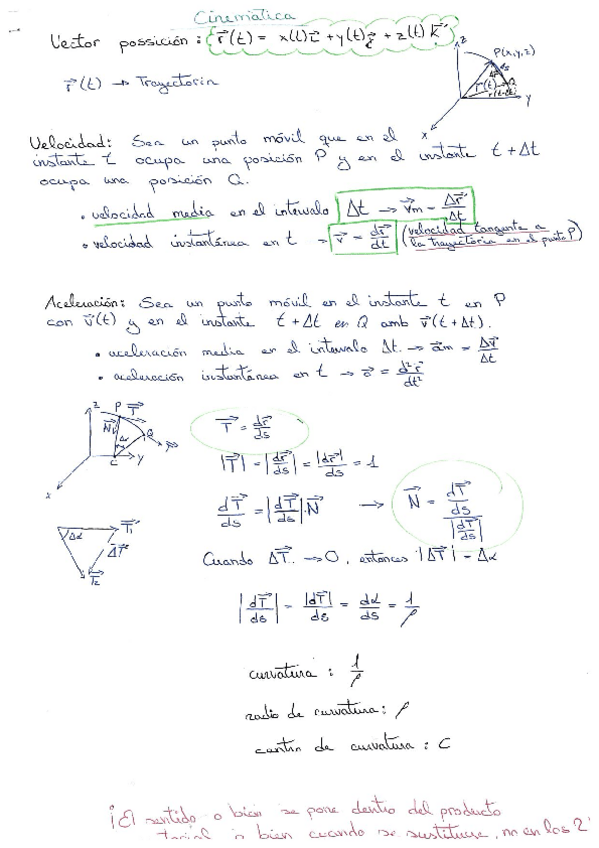 Cinemática
Vector possición : r⃗(t) = x(t)i⃗ + y(t)j⃗ + z(t)k⃗
r⃗(t) → Trayectoria
z
P(x,y,z)
Δr⃗
ds
Q
r⃗(t)
r⃗(t+Δt)
y
x
Velocidad: Sea un punto móvil que en el
instante t ocupa una posición P y en el instante t + Δt
ocupa una posición Q.
• velocidad media en el intervalo Δt → v⃗m = Δr⃗/Δt
• velocidad instantánea en t → v⃗ = dr⃗/dt (velocidad tangente a
la trayectoria en el punto P)
Aceleración: Sea un punto móvil en el instante t en P
con v⃗(t) y en el instante t + Δt en Q amb v⃗(t + Δt).
• aceleración media en el intervalo Δt. → a⃗m = Δv⃗/Δt
• aceleración instantánea en t → a⃗ = d²r⃗/dt²
z P T⃗
N⃗
Q
C y
x
T⃗ = dr⃗/ds
|T⃗| = |dr⃗/ds| = |dr⃗|/ds = 1
dT⃗/ds = |dT⃗/ds|·N⃗ → N⃗ = (dT⃗/ds)/|dT⃗/ds|
Δα T⃗₁
ΔT⃗
T⃗₂
Cuando ΔT⃗ → 0, entonces |ΔT⃗| = Δα
|dT⃗/ds| = |dT⃗|/ds = dα/ds = 1/ρ
curvatura : 1/ρ
radio de curvatura: ρ
centro de curvatura : C
¡El sentido o bien se pone dentro del producto
o bien cuando se sustituye, no en los 2